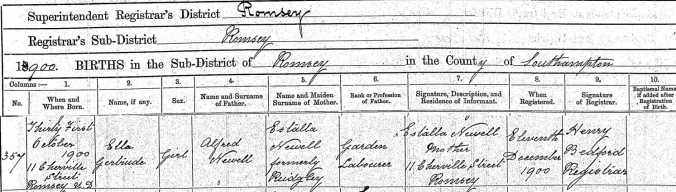 Superintendent Registrar's District Romsey
Registrar's Sub-District Romsey
1900. BIRTHS in the Sub-District of Romsey in the County of Southampton
Columns :— 1. 2. 3. 4. 5. 6. 7. 8. 9. 10.
No. When and Where Born. Name, if any. Sex. Name and Surname of Father. Name and Maiden Surname of Mother. Rank or Profession of Father. Signature, Description, and Residence of Informant. When Registered. Signature of Registrar. Baptismal Name if added after Registration of Birth.
357
Thirty First October 1900 11 Cherville Street Romsey U.D
Ella Gertrude
Girl
Alfred Newell
Estalla Newell formerly Ridgley
Garden Labourer
Estalla Newell Mother 11 Cherville Street Romsey
Eleventh December 1900
Henry Bedford Registrar